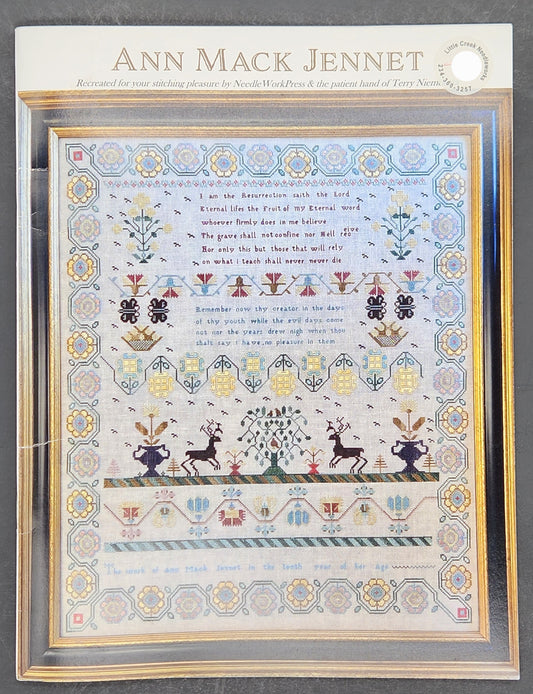 ANN MACK JENNET
Recreated for your stitching pleasure by NeedleWorkPress & the patient hand of Terry Niem
Little Creek Needleworks
234-380-3257
I am the Resurrection saith the Lord
Eternal lifes the Fruit of my Eternal word
whoever firmly does in me believe
The grave shall not confine nor Hell rec eive
Nor only this but those that will rely
on what i teach shall never never die
Remember now thy creator in the days
of thy youth while the evil days come
not nor the years drew nigh when thou
shalt say i have no pleasure in them
The work of Ann Mack Jennet in the tenth year of her Age